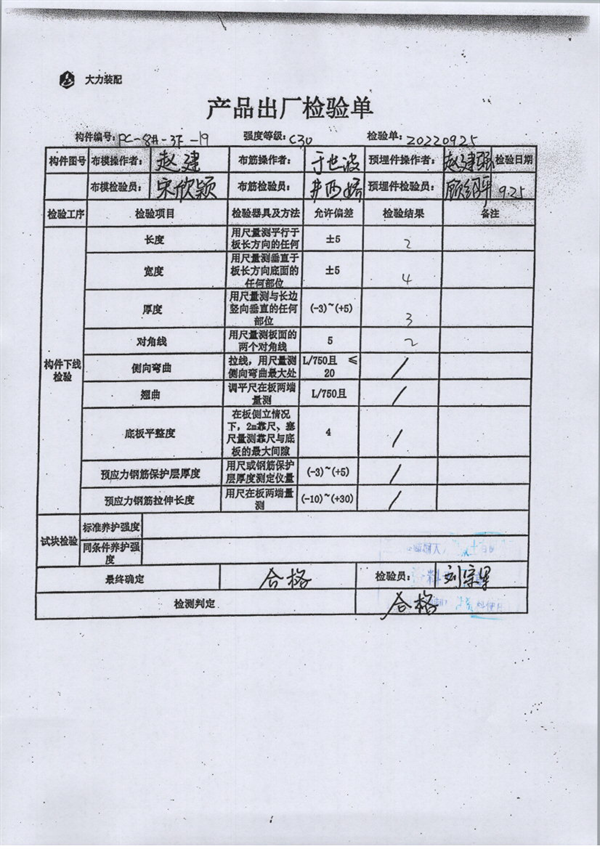 大力装配
产品出厂检验单
构件编号: PC-8#-3F-19 强度等级: C30 检验单: 20220925
构件图号 布模操作者: 赵建 布筋操作者: 于世波 预埋件操作者: 赵建 检验日期
布模检验员: 宋欣颖 布筋检验员: 预埋件检验员: 9.25
检验工序 检验项目 检验器具及方法 允许偏差 检验结果 备注
构件下线检验
长度 用尺量测平行于板长方向的任何 ±5 2
宽度 用尺量测垂直于板长方向底面的任何部位 ±5 4
厚度 用尺量测与长边竖向垂直的任何部位 (-3)~(+5) 3
对角线 用尺量测板面的两个对角线 5 2
侧向弯曲 拉线,用尺量测侧向弯曲最大处 L/750且 ≤20 /
翘曲 调平尺在板两端量测 L/750且 /
底板平整度 在板侧立情况下,2m靠尺、塞尺量测靠尺与底板的最大间隙 4 /
预应力钢筋保护层厚度 用尺或钢筋保护层厚度测定仪量 (-3)~(+5) /
预应力钢筋拉伸长度 用尺在板两端量测 (-10)~(+30) /
试块检验 标准养护强度
同条件养护强度
最终确定 合格 检验员: 刘
检测判定 合格